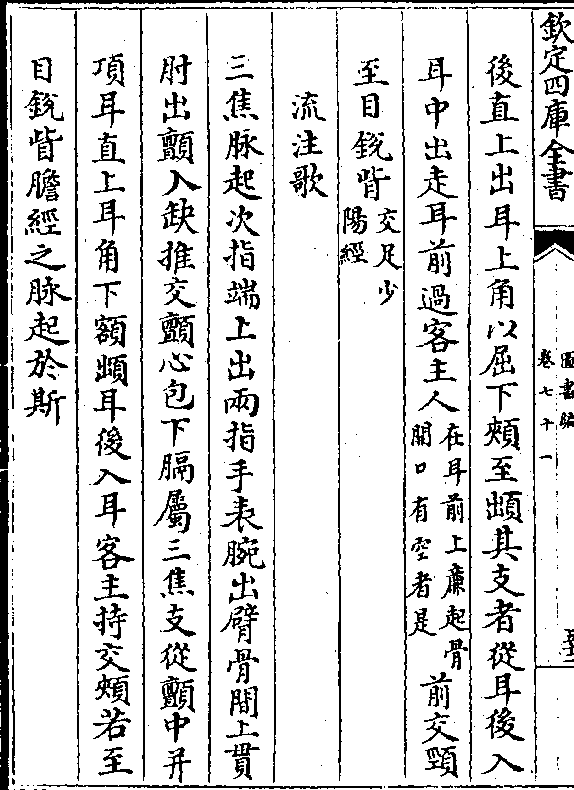 欽定四庫全書
圖書編
卷七十一
後直上出耳上角以屈下頰至䪼其支者從耳後入
耳中出走耳前過客主人在耳前上廉起骨開口有空者是前交頸
至目銳眥交足少陽經
流注歌
三焦脉起次指端上出兩指手表腕出臂骨間上貫
肘出顫入缺推交顫心包下膈屬三焦支從顫中并
項耳直上耳角下額䪼耳後入耳客主持交頰若至
目銳眥膽經之脉起於斯